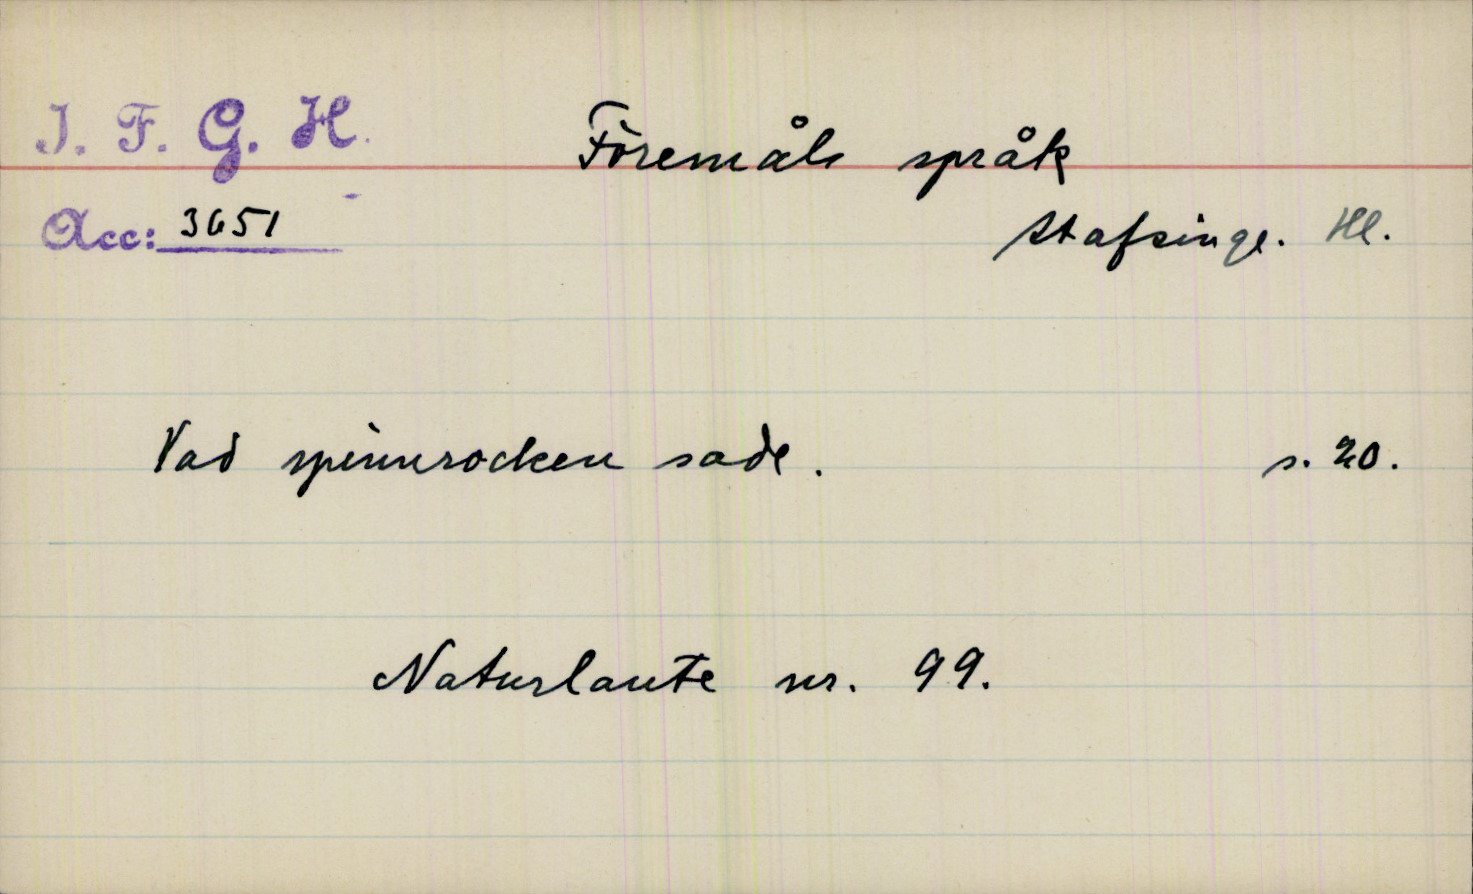 I. F. G. H.
Föremåls språk
Acc: 3651
Stafsinge. Hl.
Vad spinnrocken sade. s. 20.
Naturlaute nr. 99.